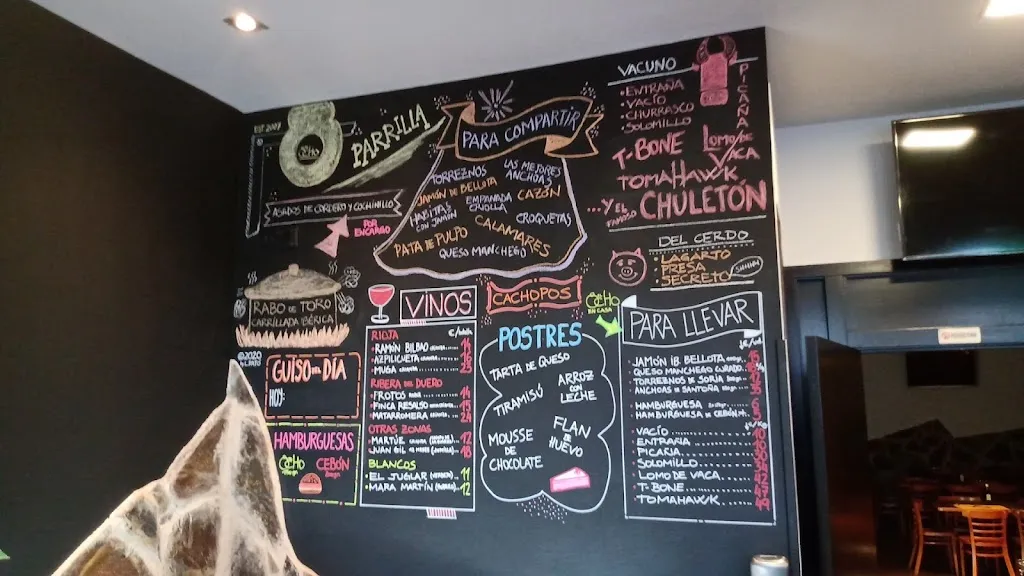 EST 2009
8
OCHO
PARRILLA
ASADOS DE CORDERO Y COCHINILLO
POR
ENCARGO
PARA COMPARTIR
TORREZNOS
LAS MEJORES
ANCHOAS
JAMÓN DE BELLOTA
CAZÓN
HABITAS
CON JAMÓN
EMPANADA
CRIOLLA
CROQUETAS
PATA DE PULPO
CALAMARES
QUESO MANCHEGO
VACUNO
PICAÑA
• ENTRAÑA
• VACÍO
• CHURRASCO
• SOLOMILLO
T-BONE
LOMO DE
VACA
TOMAHAWK
...Y EL FAMOSO CHULETÓN
DEL CERDO
• LAGARTO
• PRESA
• SECRETO
RABO DE TORO
CARRILLADA IBÉRICA
©2020
GUISO DEL DÍA
HOY:
HAMBURGUESAS
OCHO
CEBÓN
VINOS
RIOJA
• RAMÓN BILBAO
• AZPILICUETA
• MUGA 23
RIBERA DEL DUERO
• PROTOS 14
• FINCA RESALSO
• MATARROMERA 24
OTRAS ZONAS
• MARTÚE 12
• JUAN GIL
BLANCOS
• EL JUGLAR 11
• MARA MARTÍN 12
CACHOPOS
POSTRES
TARTA DE QUESO
TIRAMISÚ
ARROZ
CON
LECHE
MOUSSE
DE
CHOCOLATE
FLAN
DE
HUEVO
OCHO
EN CASA
PARA LLEVAR
• JAMÓN IB. BELLOTA
• QUESO MANCHEGO CURADO
• TORREZNOS DE SORIA
• ANCHOAS DE SANTOÑA
• HAMBURGUESA
• HAMBURGUESA DE CEBÓN
• VACÍO
• ENTRAÑA
• PICAÑA
• SOLOMILLO
• LOMO DE VACA
• T-BONE
• TOMAHAWK